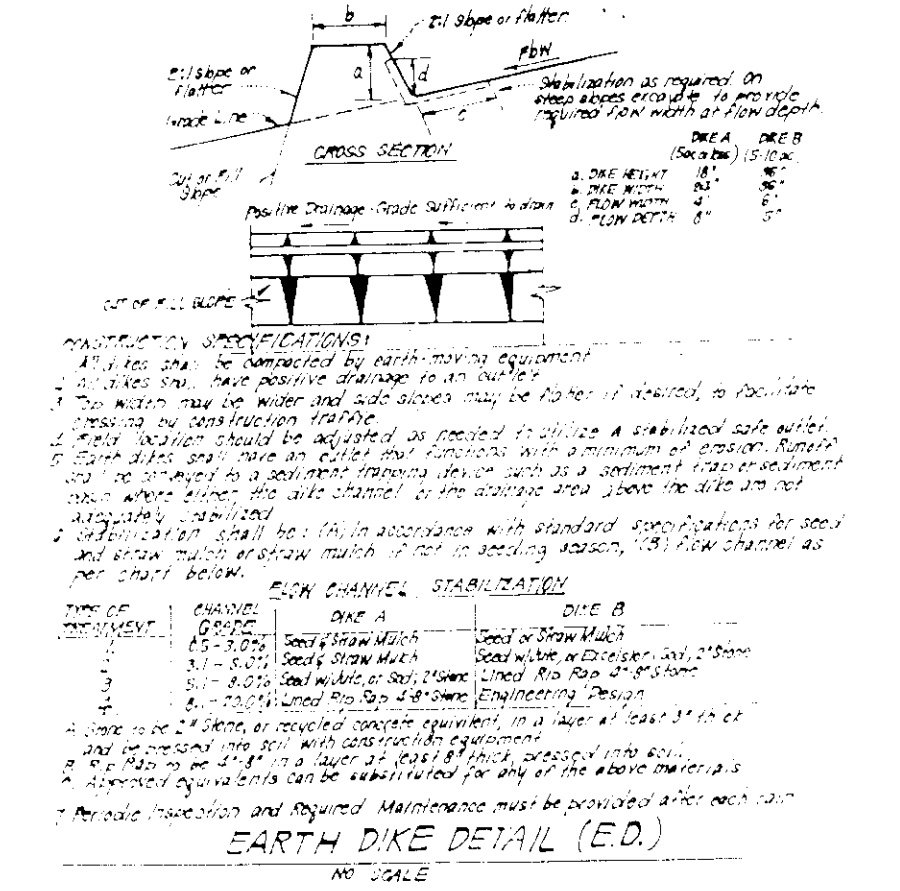 b
2:1 Slope or flatter
Flow
2:1 Slope or
flatter
a
d
c
Stabilization as required. On
steep slopes excavate to provide
required flow width at flow depth.
Grade Line
CROSS SECTION
Cut or Fill
Slope
DIKE A DIKE B
(5-10 ac.
a. DIKE HEIGHT 18"
b. DIKE WIDTH
c. FLOW WIDTH 4' 6'
d. FLOW DEPTH 8"
Positive Drainage-Grade Sufficient to drain
CUT OR FILL SLOPE
CONSTRUCTION SPECIFICATIONS:
All dikes shall be compacted by earth-moving equipment
All dikes shall have positive drainage to an outlet
3 Top width may be wider and side slopes may be flatter if desired, to facilitate
crossing by construction traffic.
4 Field location should be adjusted as needed to utilize a stabilized safe outlet.
5 Earth dikes shall have an outlet that functions with a minimum of erosion. Runoff
shall be conveyed to a sediment trapping device such as a sediment trap or sediment
basin where either the dike channel or the drainage area above the dike are not
adequately stabilized
Stabilization shall be: (A) In accordance with standard specifications for seed
and straw mulch or straw mulch if not in seeding season, (B) flow channel as
per chart below.
FLOW CHANNEL STABILIZATION
TYPE OF TREATMENT CHANNEL GRADE DIKE A DIKE B
1 0.5-3.0% Seed & Straw Mulch Seed or Straw Mulch
2 3.1-5.0% Seed & Straw Mulch Seed w/Jute, or Excelsior; Sod; 2" Stone
3 5.1-8.0% Seed w/Jute, or Sod; 2" Stone Lined Rip Rap 4"-8" Stone
4 8.1-20.0% Lined Rip Rap 4"-8" Stone Engineering Design
A. Stone to be 2" Stone, or recycled concrete equivilent, in a layer at least 3" thick
and be pressed into soil with construction equipment
B. Rip Rap to be 4"-8" in a layer at least 8" thick, pressed into soil.
C. Approved equivalents can be substituted for any of the above materials
7 Periodic Inspection and Required Maintenance must be provided after each rain
EARTH DIKE DETAIL (E.D.)
NO SCALE